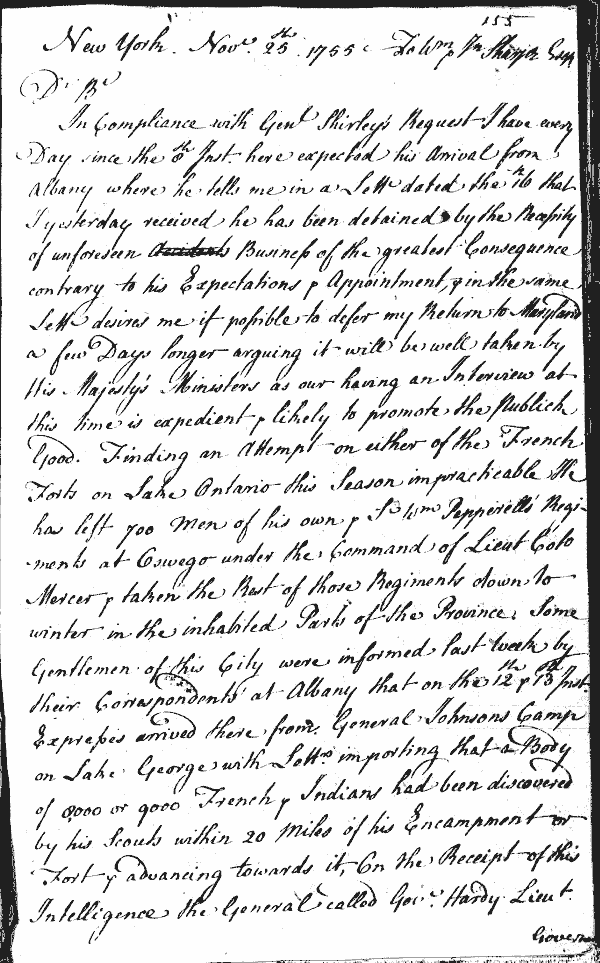 155
New York. Novr. 25th. 1755. To Wm & Jn Sharpe Esqr
Dr. Br
In Compliance with Genl Shirley's Request I have every
Day since the 8th Inst here expected his Arrival from
Albany where he tells me in a Lettr dated the 16th that
I yesterday received he has been detained by the Necessity
of unforeseen Business of the greatest Consequence
contrary to his Expectations & Appointment, & in the same
Lettr desires me if possible to defer my Return to Maryland
a few Days longer arguing it will be well taken by
His Majesty's Ministers as our having an Interview at
this time is expedient & likely to promote the Publick
Good. Finding an Attempt on either of the French
Forts on Lake Ontario this Season impracticable He
has left 700 Men of his own & Sr Wm Pepperell's Regi-
-ments at Oswego under the Command of Lieut Colo
Mercer & taken the Rest of those Regiments down to
winter in the inhabited Parts of the Province. Some
Gentlemen of this City were informed last Week by
their Correspondents at Albany that on the 12th & 13th Inst
Expresses arrived there from General Johnsons Camp
on Lake George with Lettrs importing that a Body
of 8000 or 9000 French & Indians had been discovered
by his Scouts within 20 Miles of his Encampment or
Fort & advancing towards it, On the Receipt of this
Intelligence the General called Govr. Hardy Lieut.
Govern